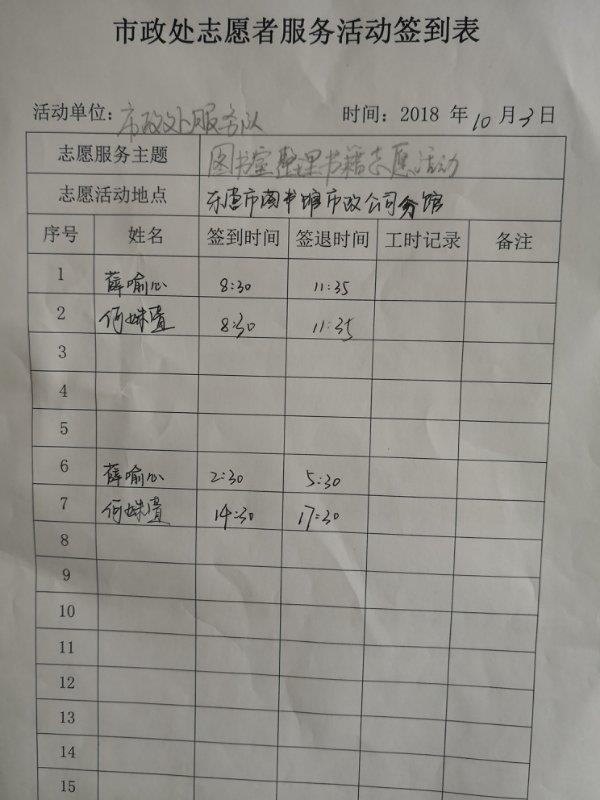 市政处志愿者服务活动签到表
活动单位:市政处服务队 时间:2018 年 10 月 3 日
志愿服务主题 图书室整理书籍志愿活动
志愿活动地点 乐清市图书馆市政公司分馆
序号 姓名 签到时间 签退时间 工时记录 备注
1 薛喻心 8:30 11:35
2 何妹 8:30 11:35
3
4
5
6 薛喻心 2:30 5:30
7 何妹 14:30 17:30
8
9
10
11
12
13
14
15